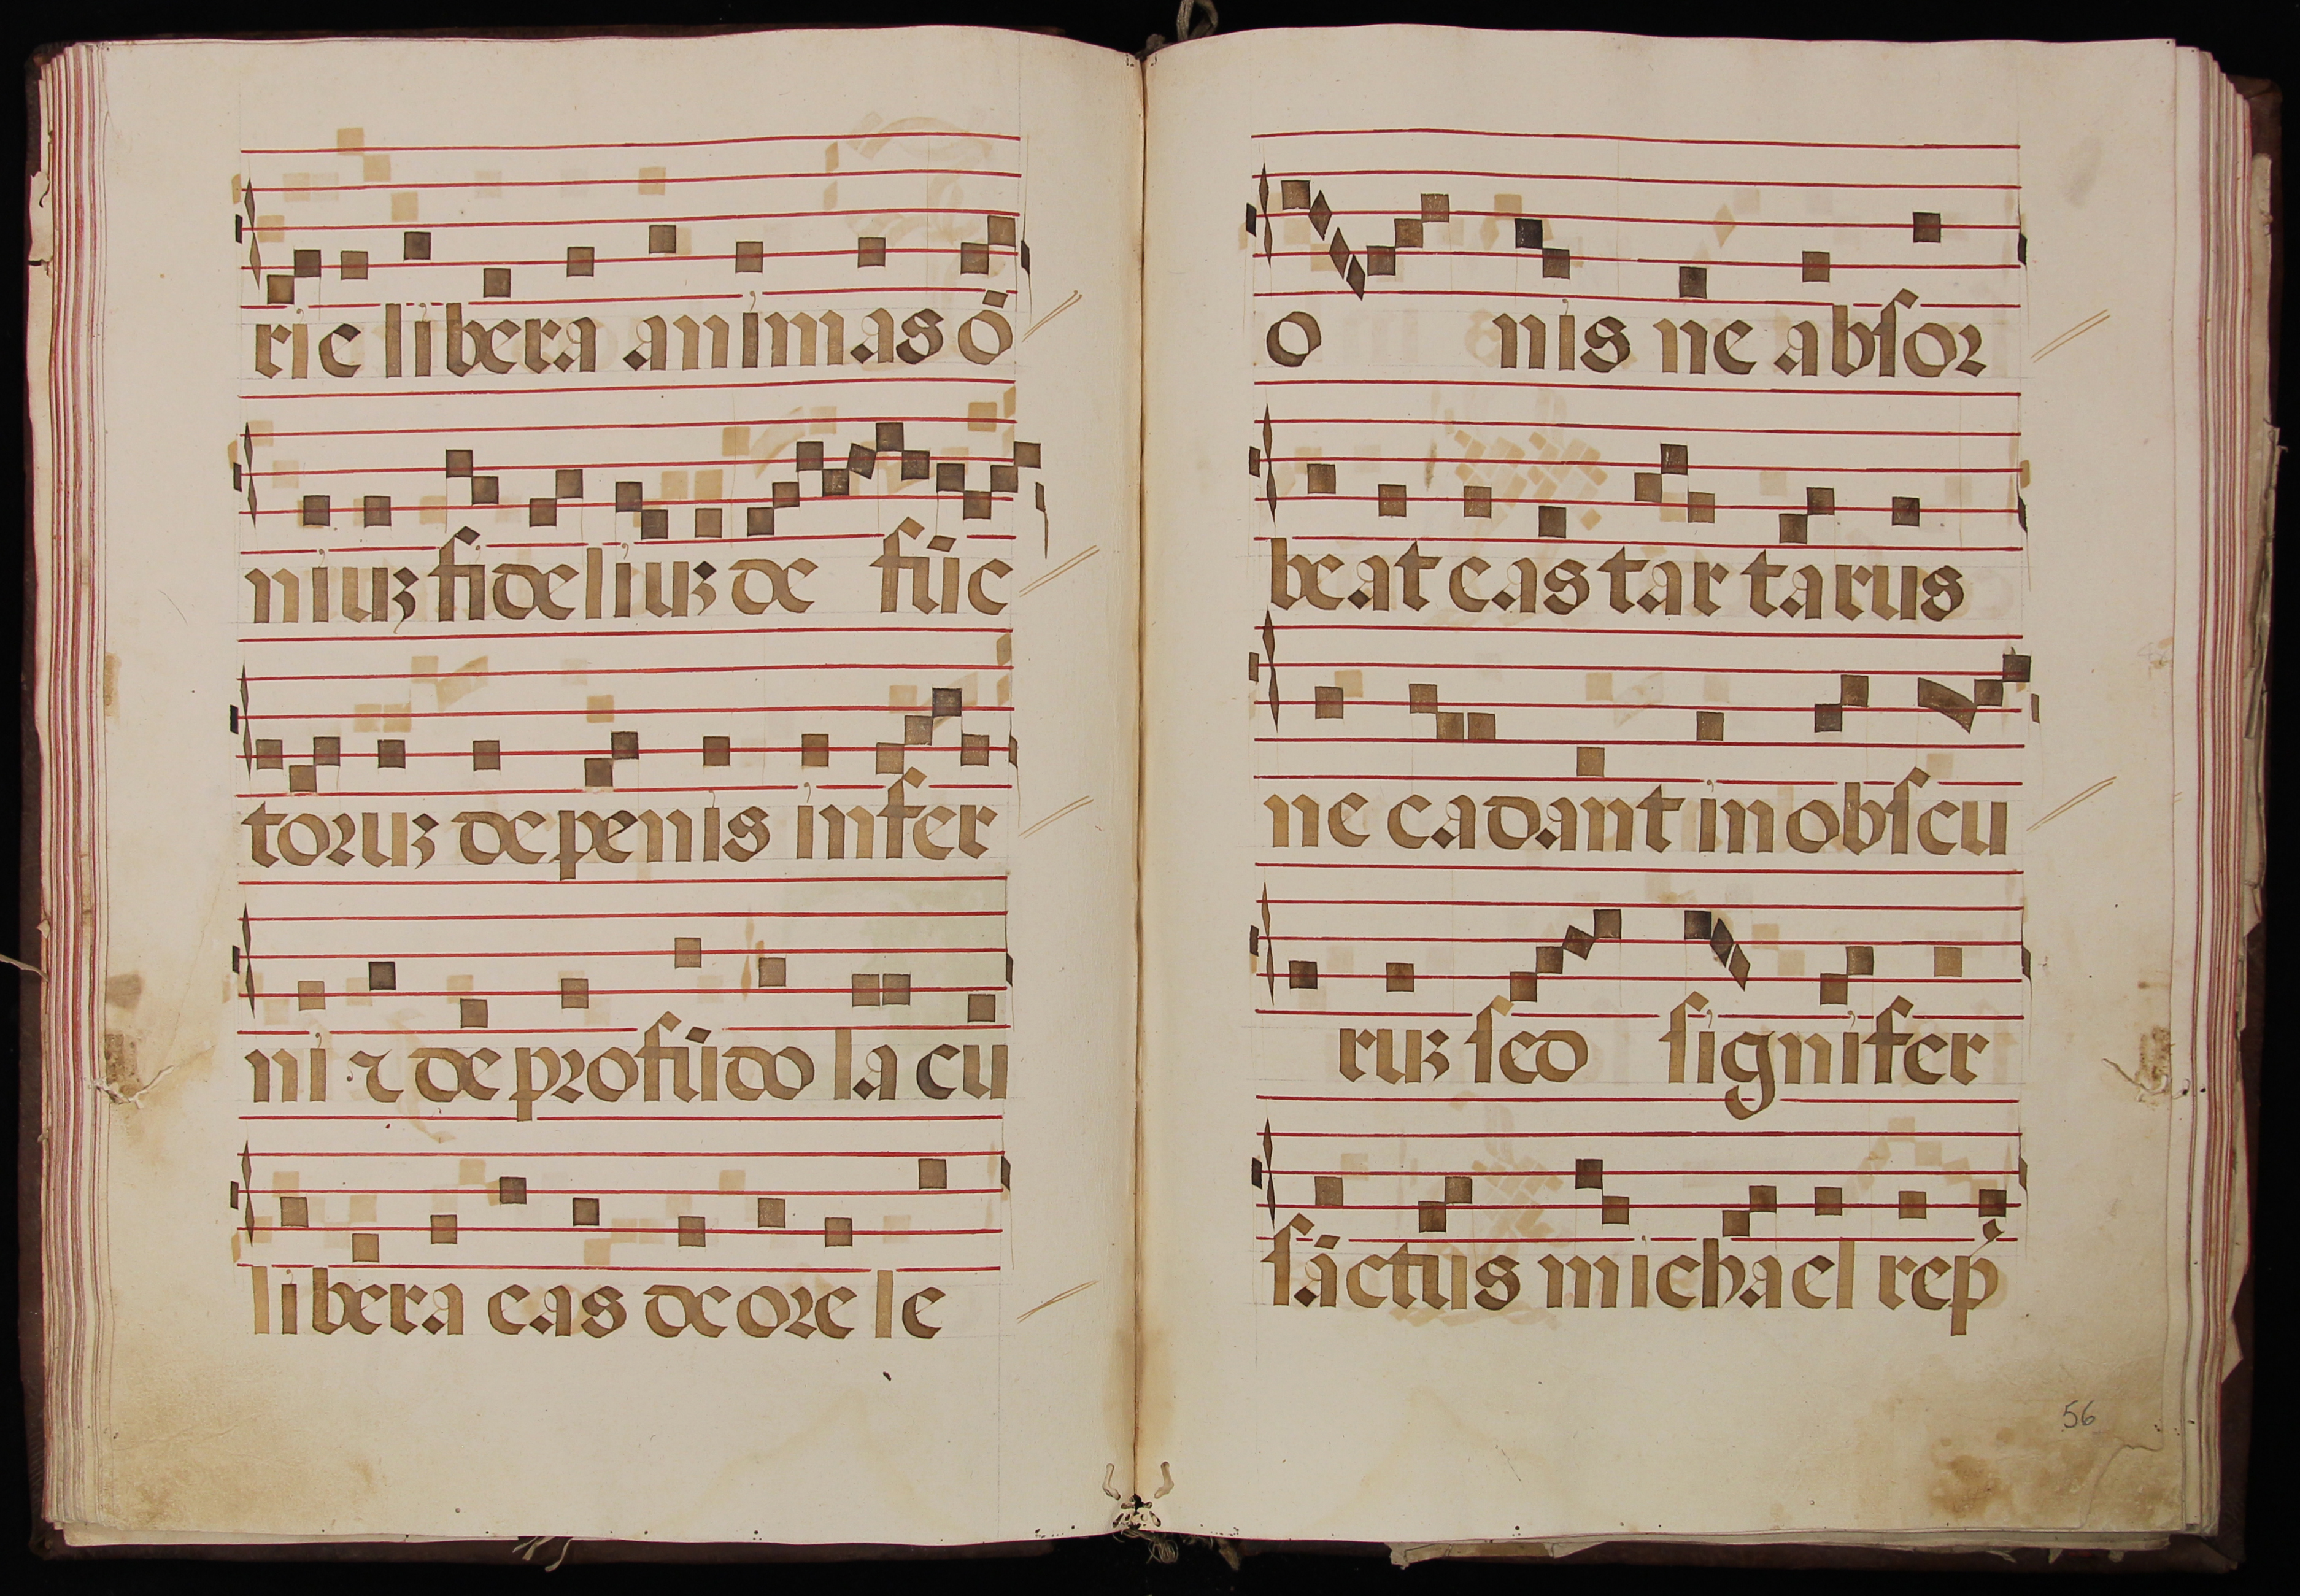 rie libera animas õ
niuꝫ fideliuꝫ de fũc
toꝛuꝫ de penis infer
ni ⁊ de pꝛofũdo lacu
libera eas de oꝛe le
o nis ne abſoꝛ
beat eas tar tarus
ne cadant in obſcu
ruꝫ ſed ſignifer
ſãctus michael rep̕
56